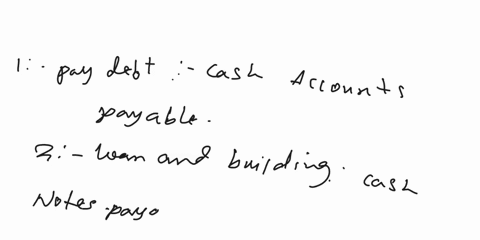 1:- pay debt :- cash Accounts
payable.
2:- loan and building. cash
Notes payo